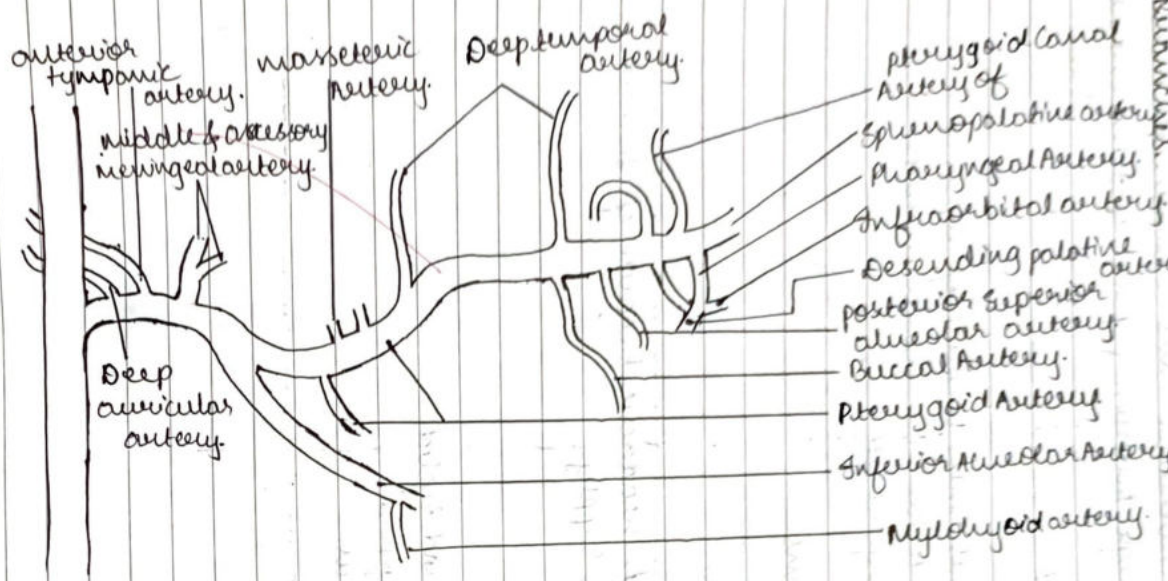 anterior
tympanic
artery.
middle & accessory
meningeal artery.
masseteric
Artery.
Deep temporal
artery.
pterygoid Canal
Artery of
Sphenopalatine artery
Pharyngeal Artery.
Infraorbital artery
Desending palatine
artery
posterior Superior
alveolar artery
Buccal Artery.
Pterygoid Artery
Inferior Alveolar Artery
Mylohyoid artery.
Deep
auricular
artery.